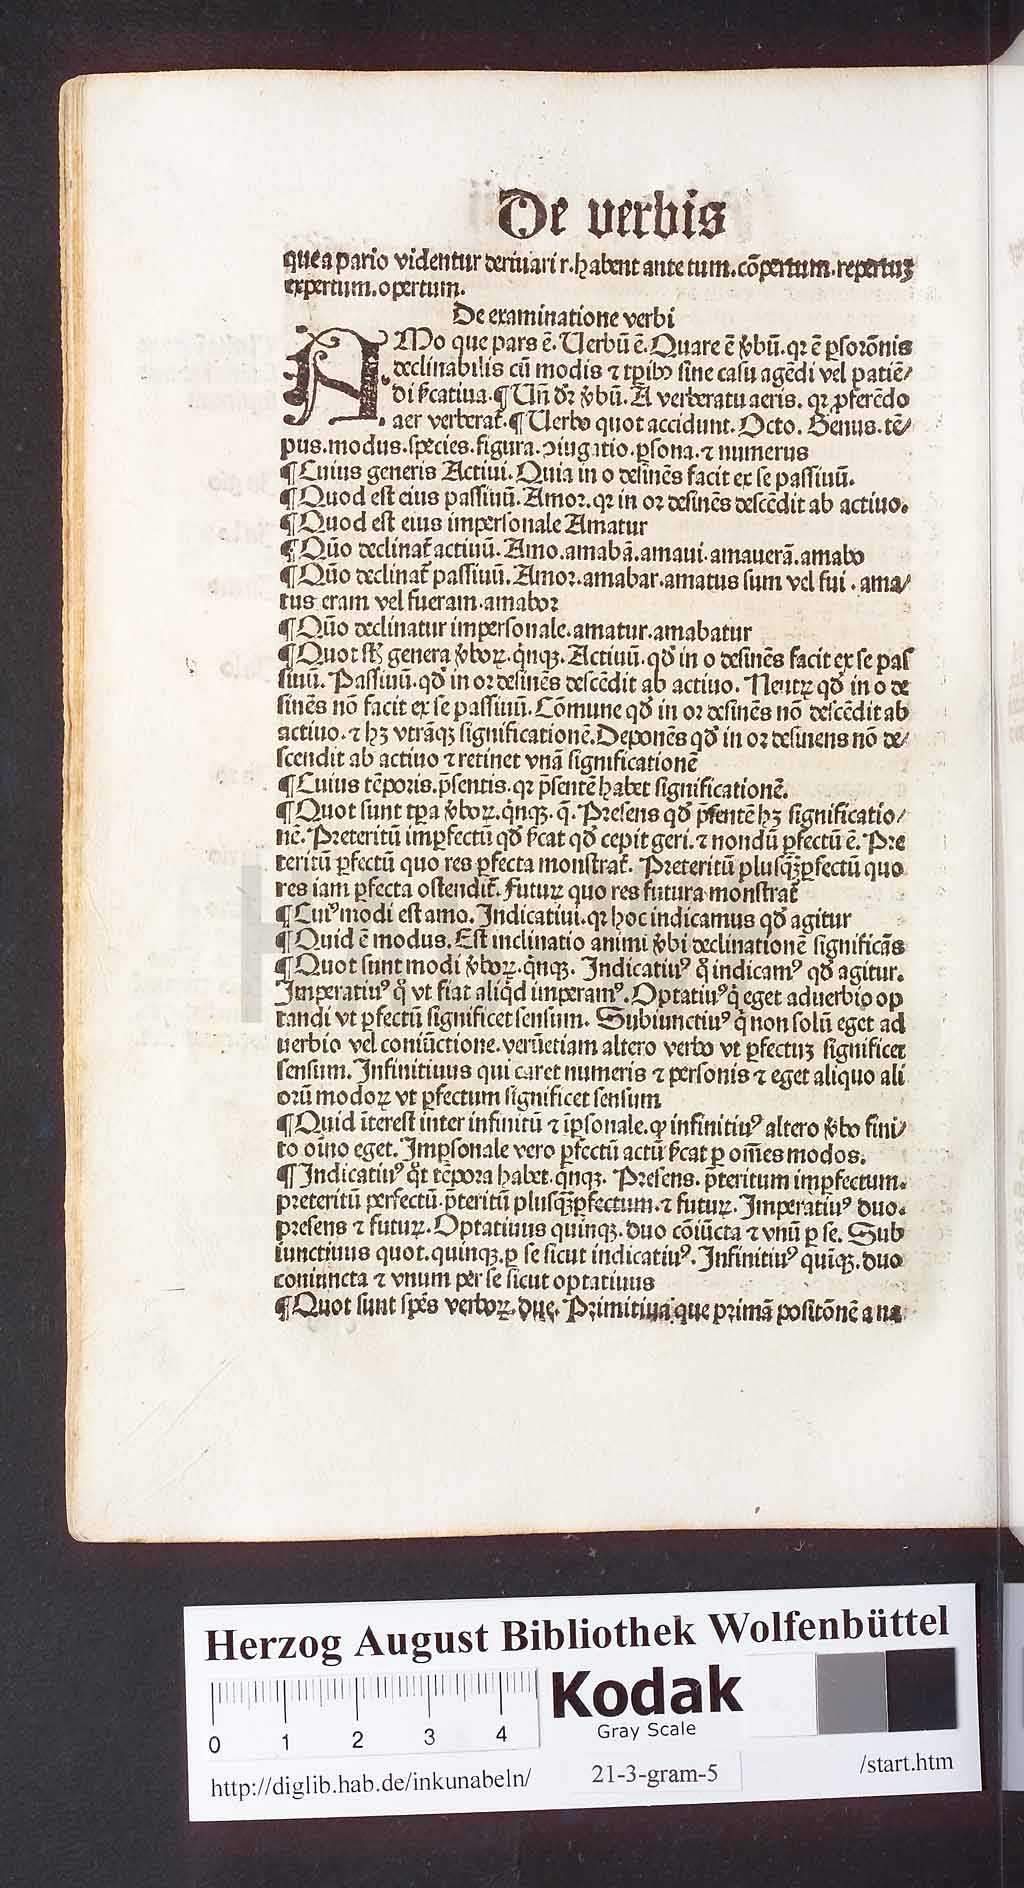 De verbis
que a pario videntur deriuari r.habent ante tum.cōpertum.repertuꝫ
expertum.opertum.
De examinatione verbi
AMo que pars ē. Uerbū ē. Quare ē ꝟbū. qꝛ ē ꝑsorōnis
declinabilis cū modis ⁊ tꝑibꝰ sine casu agēdi vel patiē/
di ſ̓catiua.¶ Un̄ dr̄ ꝟbū. A verberatu aeris. qꝛ ꝓferēdo
aer verberat̄.¶ Uerbo quot accidunt. Octo. Genus.tē/
pus.modus.species.figura.ꝯiugatio.ꝑsona.⁊ numerus
¶ Cuius generis Actiui. Quia in o desinēs facit ex se passiuū.
¶ Quod est eius passiuū. Amor. qꝛ in or desinēs descēdit ab actiuo.
¶ Quod est eius impersonale Amatur
¶ Qūo declinat̄ actiuū. Amo.amabā.amaui.amauerā.amabo
¶ Qūo declinat̄ passiuū. Amor.amabar.amatus sum vel fui . ama/
tus eram vel fueram.amabor
¶ Qūo declinatur impersonale.amatur.amabatur
¶ Quot sūt genera ꝟboꝝ. q̇nqꝫ. Actiuū. qđ in o desinēs facit ex se pas
siuū. Passiuū. qđ in or desinēs descēdit ab actiuo. Neutꝝ qđ in o de
sinēs nō facit ex se passiuū. Cōmune qđ in or desinēs nō descēdit ab
actiuo.⁊ hꝫ vtrāqꝫ significationē. Deponēs qđ in or desinens nō de/
scendit ab actiuo ⁊ retinet vnā significationē
¶ Cuius tēporis.p̄sentis.qꝛ p̄sentē habet significationē.
¶ Quot sunt tꝑa ꝟboꝝ. q̇nqꝫ. q̄. Presens qđ p̄sentē hꝫ significatio/
nē. Preteritū imꝑfectū qđ ſ̓cat qđ cepit geri.⁊ nondū ꝑfectū ē. Pre
teritū ꝑfectū quo res ꝑfecta monstrat̄. Preteritū plusqꝫꝑfectū quo
res iam ꝑfecta ostendit̄. Futuꝝ quo res futura monstrat̄
¶ Cuiꝰ modi est amo. Indicatiui.qꝛ hoc indicamus qđ agitur
¶ Quid ē modus. Est inclinatio animi ꝟbi declinationē significās
¶ Quot sunt modi ꝟboꝝ. q̇nqꝫ. Indicatiuꝰ q̊ indicamꝰ qđ agitur.
Imperatiuꝰ q̊ vt fiat aliq̇d imperamꝰ. Optatiuꝰ q̇ eget aduerbio op
tandi vt ꝑfectū significet sensum. Subiunctiuꝰ q̇ non solū eget ad
uerbio vel coniūctione.verūetiam altero verbo vt ꝑfectuꝫ significet
sensum. Infinitiuus qui caret numeris ⁊ personis ⁊ eget aliquo ali
orū modoꝝ vt ꝑfectum significet sensum
¶ Quid īterest inter infinitū ⁊ iꝑsonale. ꝙ infinitiuꝰ altero ꝟbo fini/
to oīno eget. Imꝑsonale vero ꝑfectū actū ſ̓cat ꝑ om̄es modos.
¶ Indicatiuꝰ q̊t tēpora habet. q̇nqꝫ. Presens. p̄teritum imꝑfectum.
preteritū perfectū. p̄teritū plusqꝫꝑfectum.⁊ futuꝝ. Imperatiuꝰ duo.
presens ⁊ futuꝝ. Optatiuus quinqꝫ. duo cōiūcta ⁊ vnū ꝑ se. Sub
iunctiuus quot.quinqꝫ.ꝑ se sicut indicatiuꝰ. Infinitiuꝰ quīqꝫ.duo
coniuncta ⁊ vnum per se sicut optatiuus
¶ Quot sunt spēs verboꝝ. due. Primitiua que primā positōnē a na
Herzog August Bibliothek Wolfenbüttel
0 1 2 3 4
Kodak
Gray Scale
http://diglib.hab.de/inkunabeln/ 21-3-gram-5 /start.htm